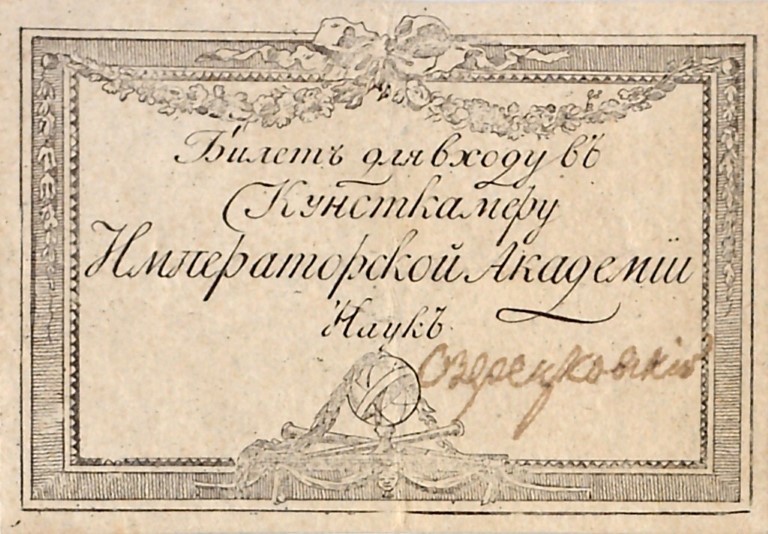 Билетъ для входу въ
Кунсткамеру
Императорской Академіи
Наукъ.
Озерецковскій